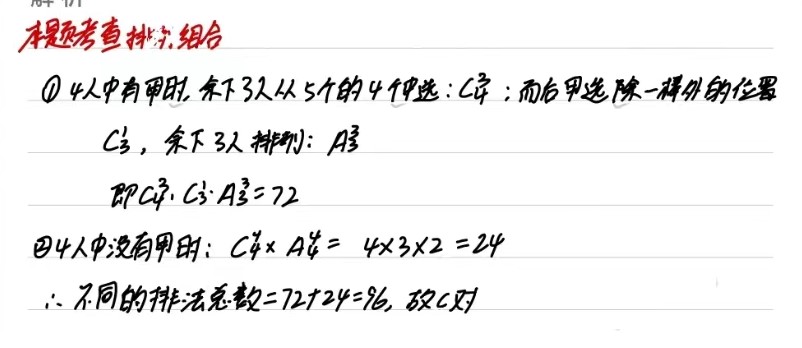 本题考查排列组合
①4人中有甲时,余下3人从5个的4个中选:C₄³;而后甲选除一棒外的位置
C₃¹,余下3人排列:A₃³
即C₄³·C₃¹·A₃³=72
②4人中没有甲时:C₄⁴×A₄⁴= 4×3×2=24
∴不同的排法总数=72+24=96,故C对